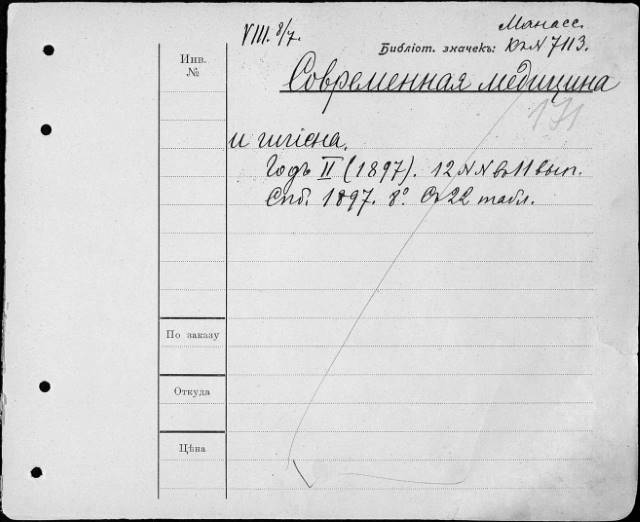 Манасс.
VIII. 8/7.
Библіот. значекъ: КъN 7113.
Инв.
№
Современная медицина
171
и гигіена.
Годъ II (1897). 12 NN въ 11 вып.
Спб. 1897. 8°. Съ 22 табл.
По заказу
Откуда
Цѣна